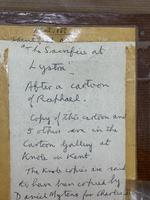 "The Sacrifice at
Lystra"
After a cartoon
of Raphael.
Copy of this cartoon and
5 others are in the
Cartoon Gallery at
Knole in Kent.
The Knole copies are said
to have been copied by
Daniel Mytens for Charles